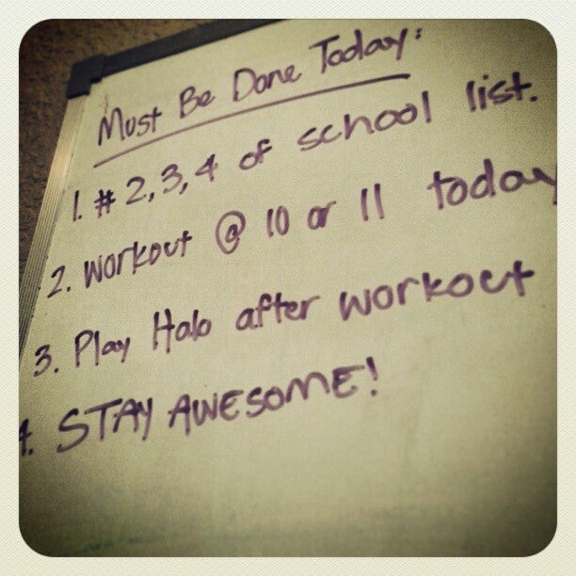 Must Be Done Today:
1. # 2,3,4 of school list.
2. Workout @ 10 or 11 today
3. Play Halo after workout
4. STAY AWESOME!